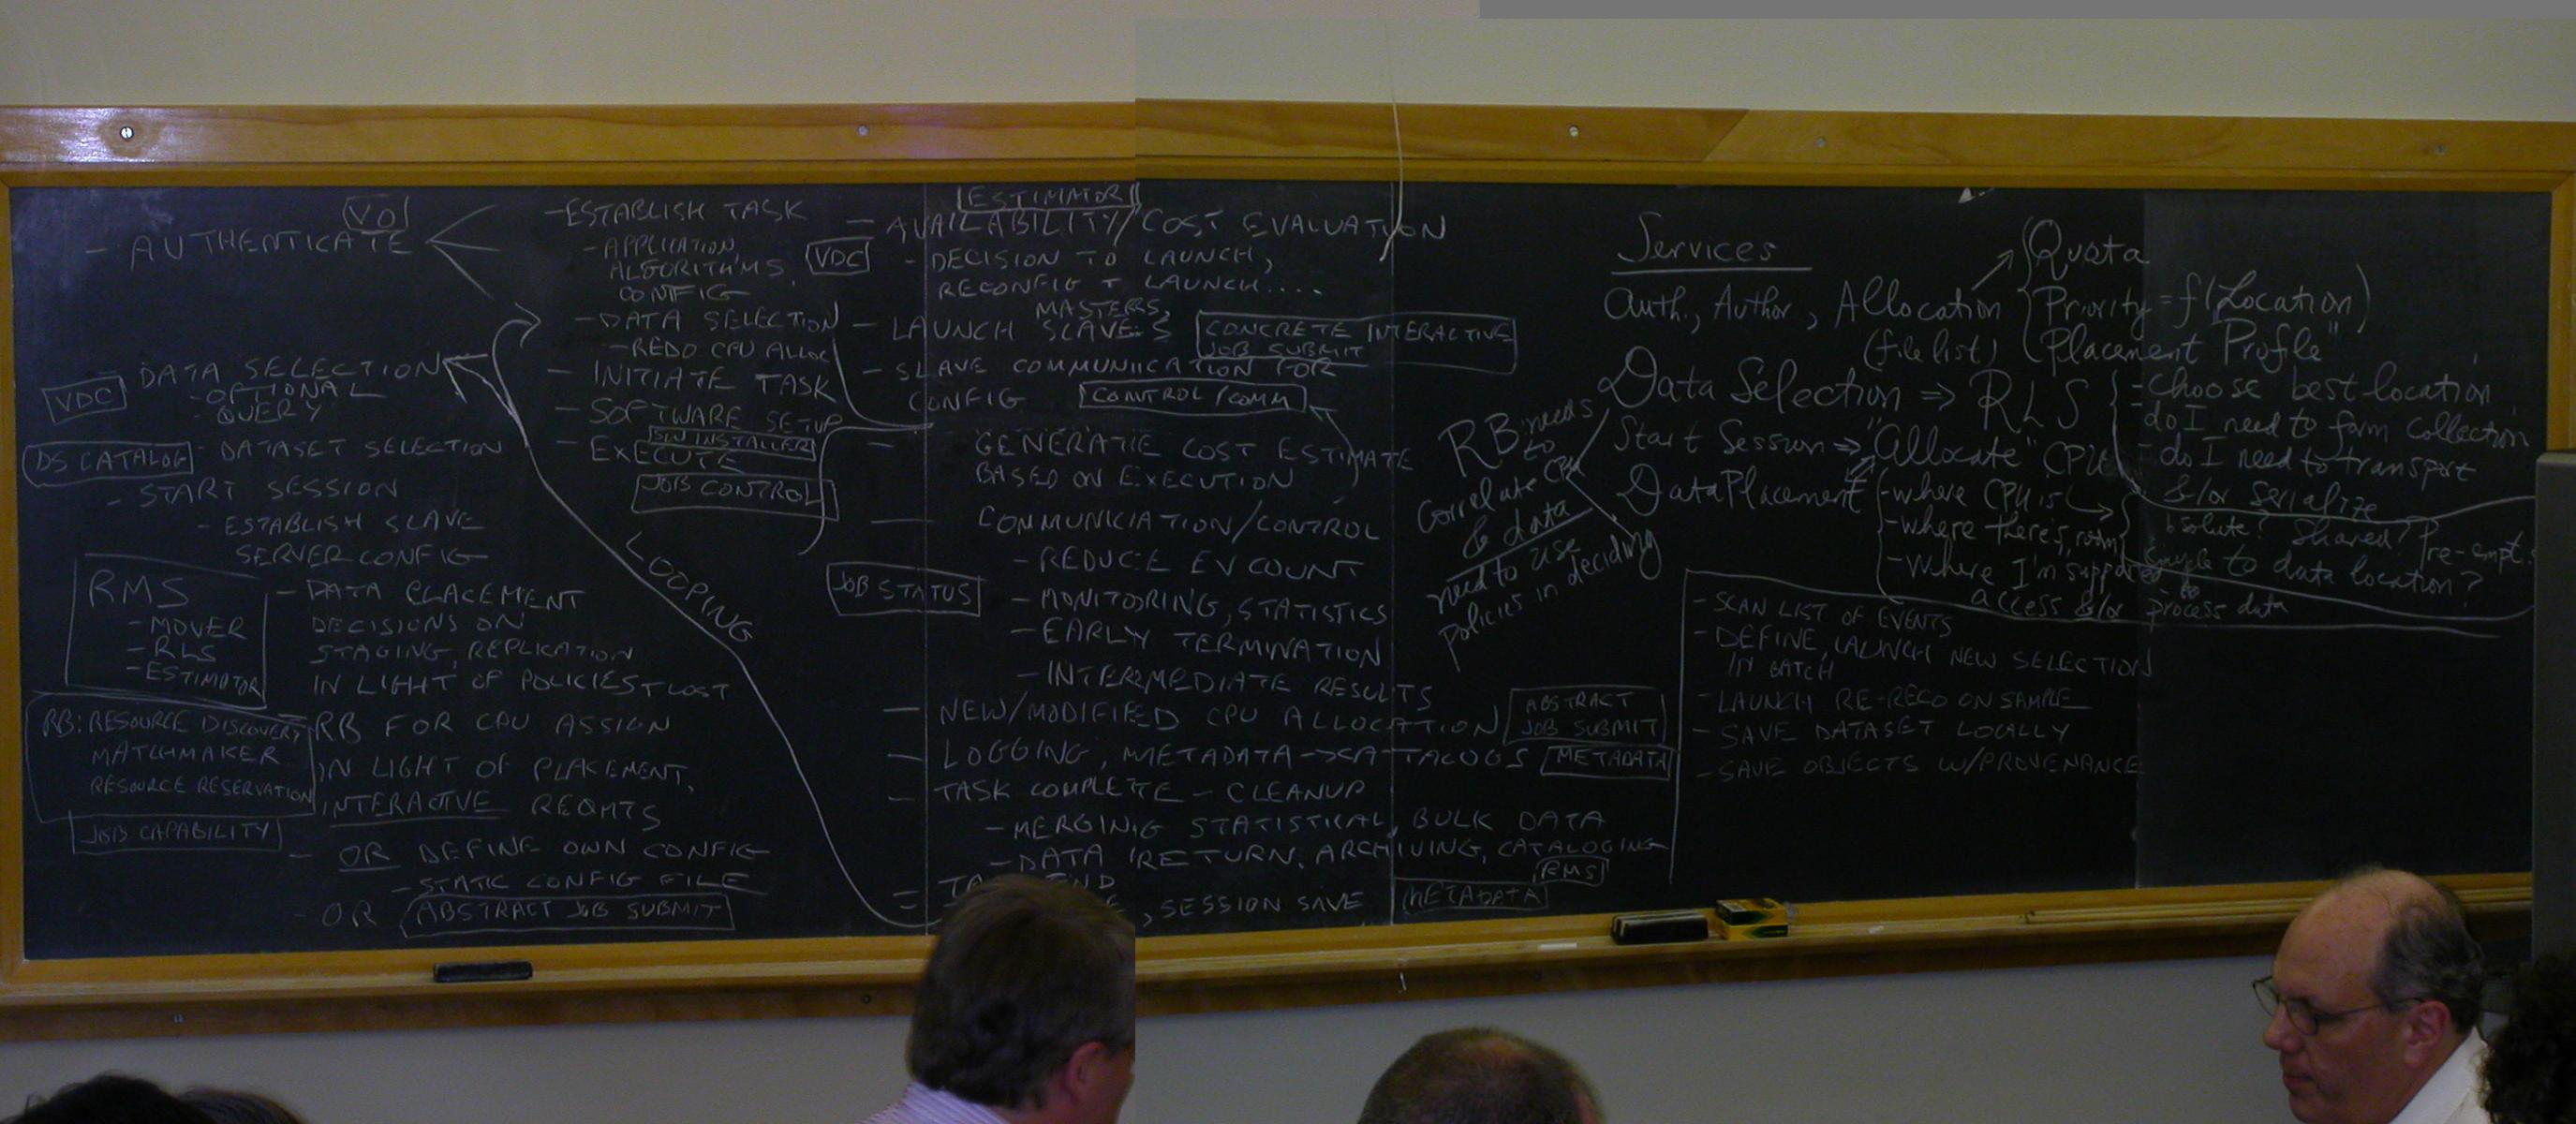 VO
- AUTHENTICATE
- DATA SELECTION
VDC
- OPTIONAL
QUERY
DS CATALOG
- DATASET SELECTION
- START SESSION
- ESTABLISH SLAVE
SERVER CONFIG
RMS
- MOVER
- RLS
- ESTIMATOR
- DATA PLACEMENT
DECISIONS ON
STAGING, REPLICATION
IN LIGHT OF POLICIES + COST
RB: RESOURCE DISCOVERY
MATCHMAKER
RESOURCE RESERVATION
- RB FOR CPU ASSIGN
IN LIGHT OF PLACEMENT,
INTERACTIVE REQMTS
JOB CAPABILITY
- OR DEFINE OWN CONFIG
- STATIC CONFIG FILE
- OR ABSTRACT JOB SUBMIT
- ESTABLISH TASK
- APPLICATION,
ALGORITHMS,
CONFIG
VDC
- DATA SELECTION
- REDO CPU ALLOC
- INITIATE TASK
- SOFTWARE SETUP
SW INSTALLER
- EXECUTE
JOB CONTROL
LOOPING
ESTIMATOR
- AVAILABILITY/COST EVALUATION
- DECISION TO LAUNCH,
RECONFIG + LAUNCH....
MASTERS,
- LAUNCH SLAVES
CONCRETE INTERACTIVE
JOB SUBMIT
- SLAVE COMMUNICATION FOR
CONFIG
CONTROL/COMM
- GENERATE COST ESTIMATE
BASED ON EXECUTION
- COMMUNICIATION/CONTROL
- REDUCE EV COUNT
JOB STATUS
- MONITORING, STATISTICS
- EARLY TERMINATION
- INTERMEDIATE RESULTS
- NEW/MODIFIED CPU ALLOCATION
ABSTRACT
JOB SUBMIT
- LOGGING, METADATA -> CATALOGS
METADATA
- TASK COMPLETE - CLEANUP
- MERGING STATISTICAL, BULK DATA
- DATA RETURN, ARCHIVING, CATALOGING
RMS
END
, SESSION SAVE
METADATA
Services
Auth., Author, Allocation
(file list)
Quota
Priority = f(Location)
"Placement Profile"
Data Selection ⇒ RLS
- choose best location
- do I need to form collection
- do I need to transport
&/or serialize
Start Session ⇒ "allocate" CPU
Data Placement
- where CPU is
- where there's room
- where I'm supposed to
access &/or process data
absolute? Shared? Pre-empt.
to data location?
RB needs
to
correlate CPU
& data
need to use
policies in deciding
- SCAN LIST OF EVENTS
- DEFINE, LAUNCH NEW SELECTION
IN BATCH
- LAUNCH RE-RECO ON SAMPLE
- SAVE DATASET LOCALLY
- SAVE OBJECTS W/PROVENANCE